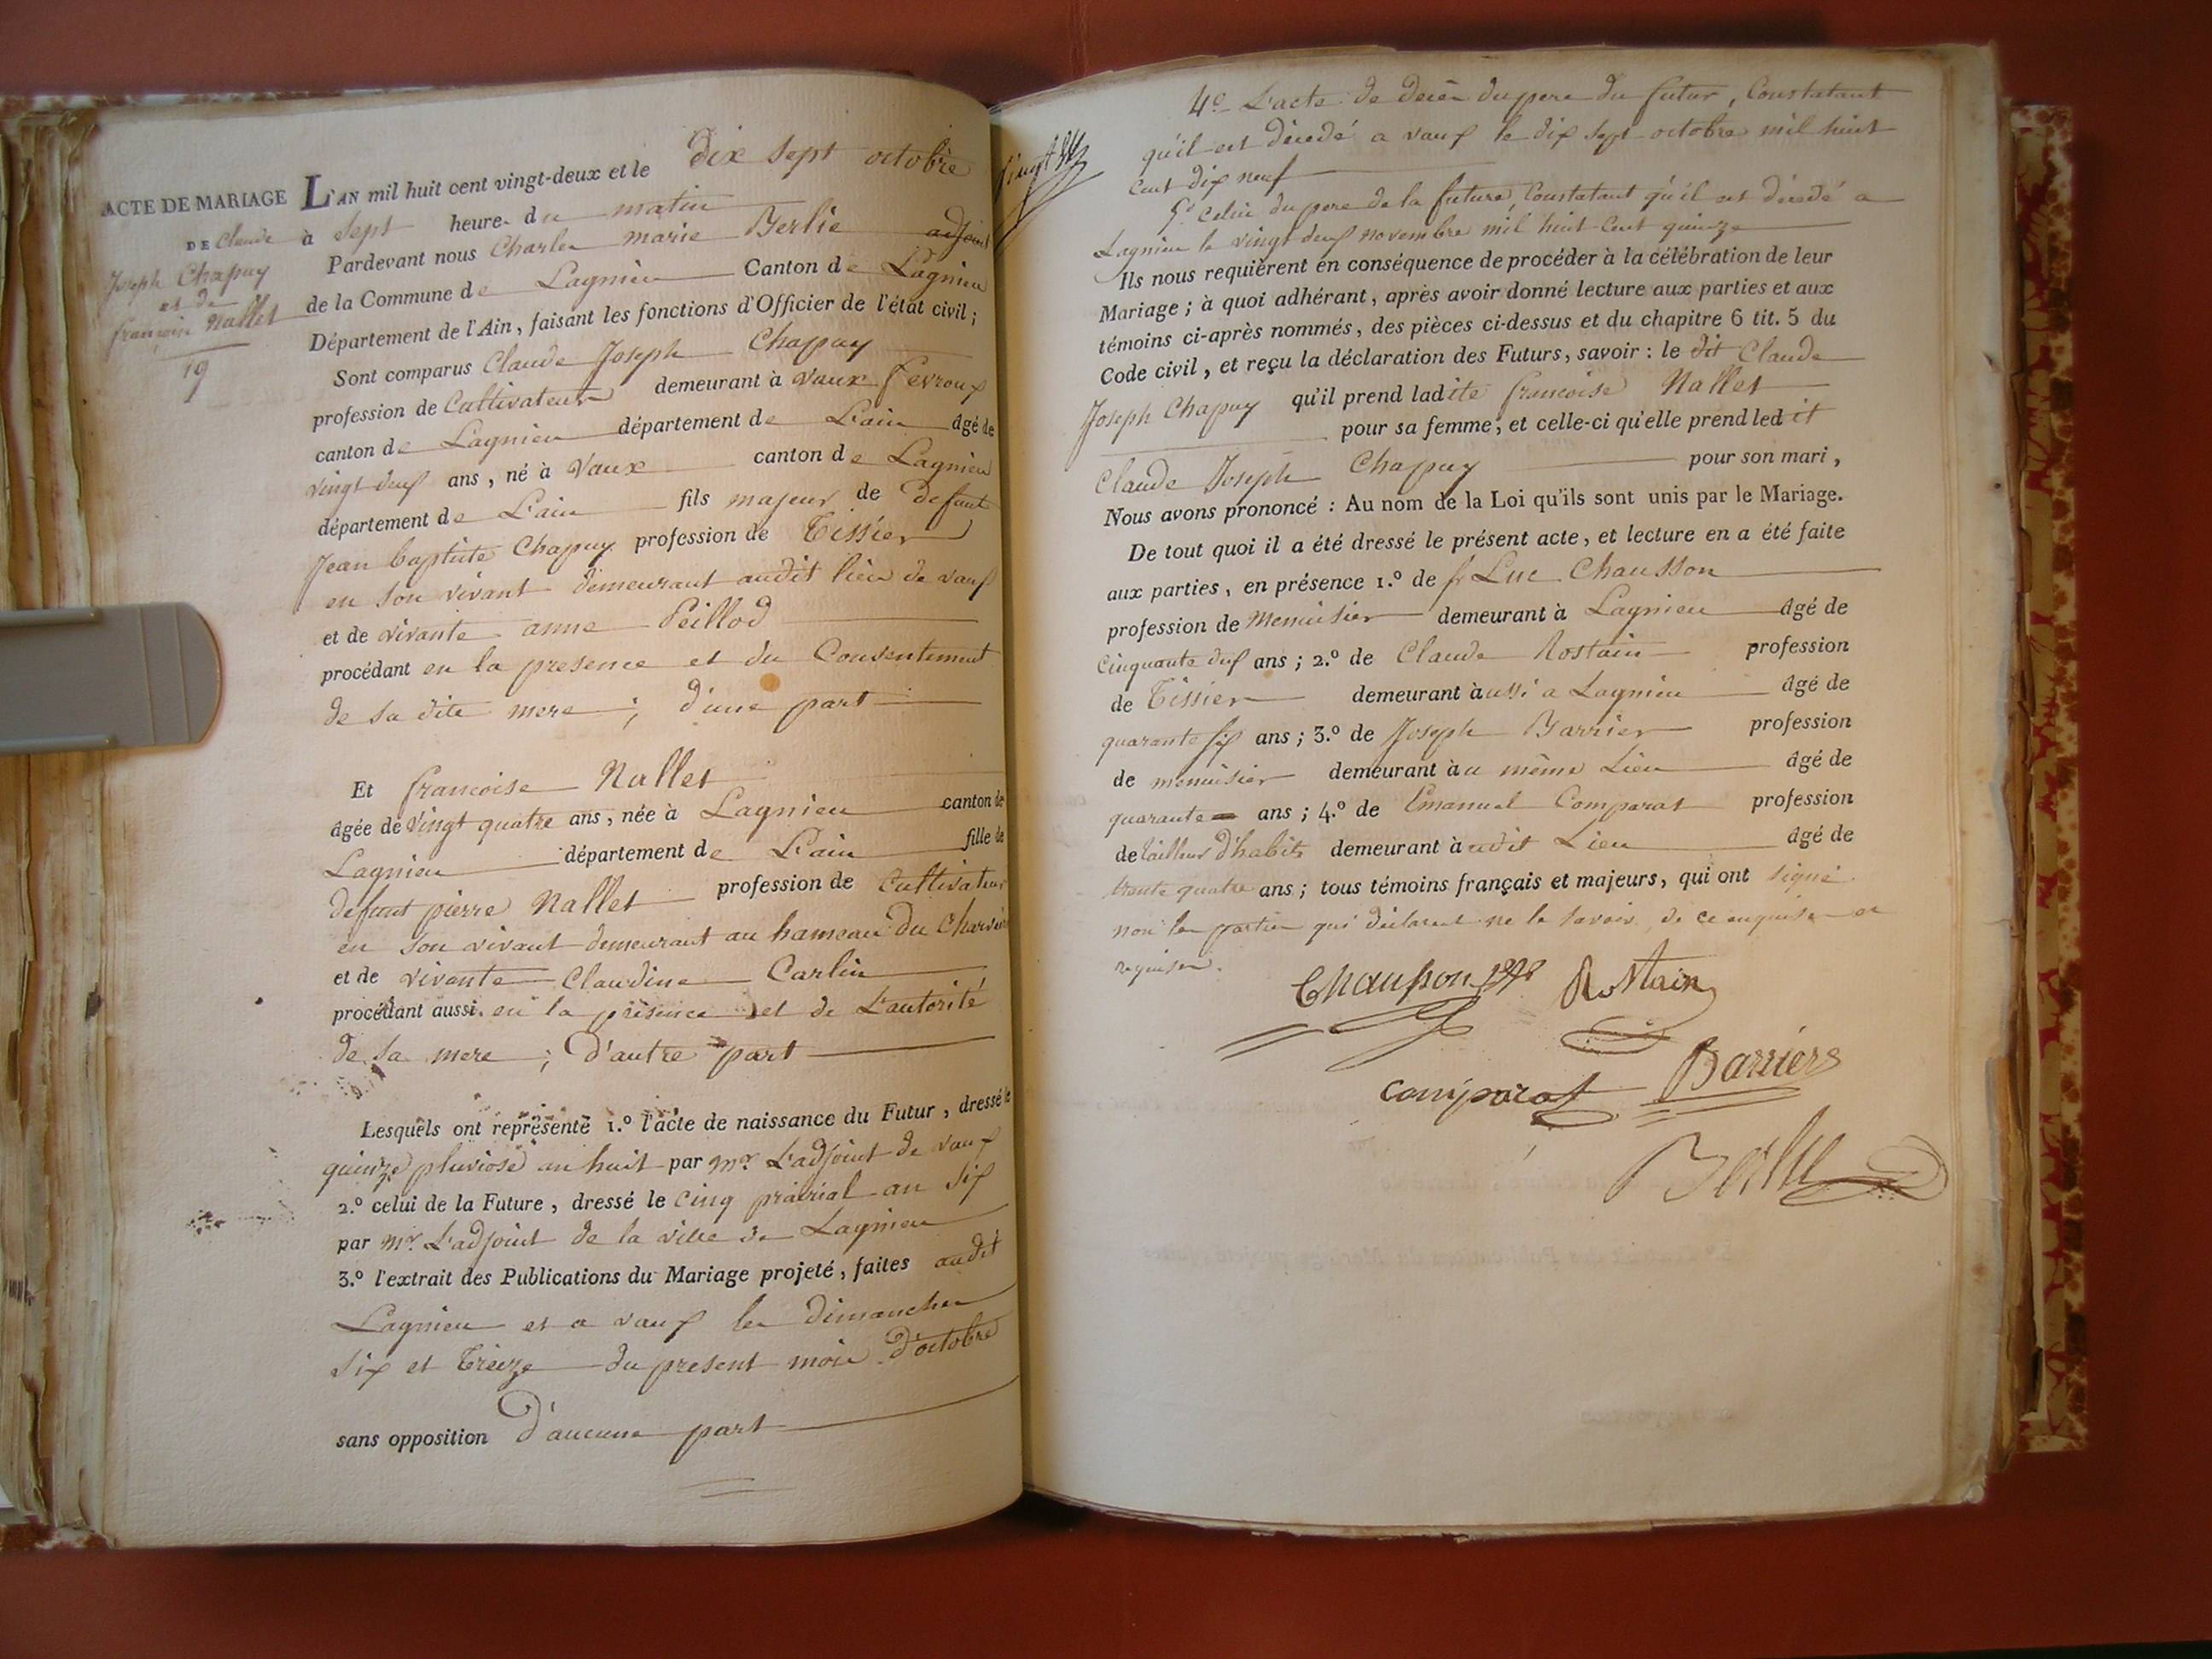 ACTE DE MARIAGE
DE Claude
Joseph Chapuy
et de
francoise Nallet
19
L'AN mil huit cent vingt-deux et le dix sept octobre
à sept heure du matin
Pardevant nous Charles marie Berlie adjoint
de la Commune de Lagnieu Canton de Lagnieu
Département de l'Ain, faisant les fonctions d'Officier de l'état civil;
Sont comparus Claude Joseph Chapuy
profession de Cultivateur demeurant à vaux fevroux
canton de Lagnieu département de L'ain âgé de
vingt deux ans, né à Vaux canton de Lagnieu
département de L'ain fils majeur de defunt
Jean baptiste Chapuy profession de Tissier
en son vivant demeurant audit lieu de vaux
et de vivante anne Peillod
procédant en la presence et du Consentement
de sa dite mere ; d'une part
Et francoise Nallet
âgée de vingt quatre ans, née à Lagnieu canton de
Lagnieu département de L'ain fille de
defunt pierre Nallet profession de Cultivateur
en son vivant demeurant au hameau du
et de vivante Claudine Carlin
procédant aussi en la présence et de L'autorité
de sa mere ; D'autre part
Lesquels ont représenté 1.º l'acte de naissance du Futur, dressé le
quinze pluviose an huit par Mr. L'adjoint de vaux
2.º celui de la Future, dressé le cinq prairial an six
par Mr. L'adjoint de la ville de Lagnieu
3.º l'extrait des Publications du Mariage projeté, faites audit
Lagnieu et a vaux les dimanches
six et treize du present mois d'octobre
sans opposition D'aucune part
4º L'acte de décès du pere du futur, Constatant
qu'il est décédé a vaux le dix sept octobre mil huit
cent dix neuf
5º Celui du pere de la future, Constatant qu'il est décédé a
Lagnieu le vingt deux novembre mil huit cent quinze
Ils nous requièrent en conséquence de procéder à la célébration de leur
Mariage; à quoi adhérant, après avoir donné lecture aux parties et aux
témoins ci-après nommés, des pièces ci-dessus et du chapitre 6 tit. 5 du
Code civil, et reçu la déclaration des Futurs, savoir: le dit Claude
Joseph Chapuy qu'il prend ladite francoise Nallet
pour sa femme; et celle-ci qu'elle prend ledit
Claude Joseph Chapuy pour son mari,
Nous avons prononcé : Au nom de la Loi qu'ils sont unis par le Mariage.
De tout quoi il a été dressé le présent acte, et lecture en a été faite
aux parties, en présence 1.º de fr Luc Chausson
profession de Menuisier demeurant à Lagnieu âgé de
Cinquante deux ans; 2.º de Claude Rostain profession
de Tissier demeurant àussi a Lagnieu âgé de
quarante six ans; 3.º de Joseph Barrier profession
de menuisier demeurant àu même Lieu âgé de
quarante ans; 4.º de Emanuel Comparat profession
de tailleur d'habits demeurant àudit Lieu âgé de
trente quatre ans; tous témoins français et majeurs, qui ont signé
non les parties qui déclarent ne le savoir, de ce enquises et
requises.
Chausson Rostain
comparat Barriers
Berlie